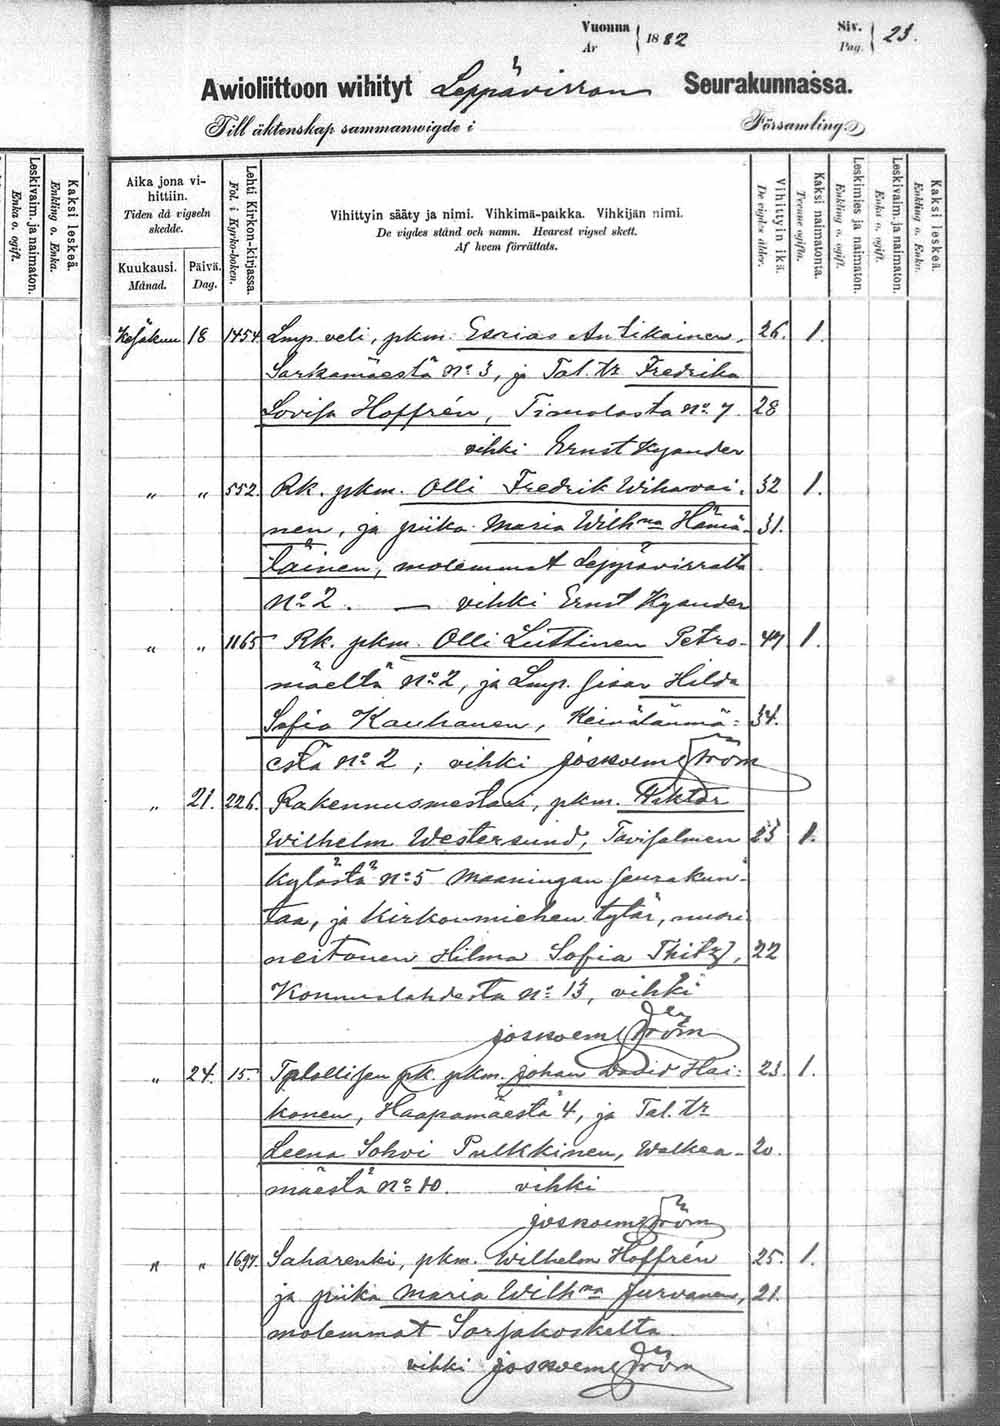 Vuonna
År
1882
Siv.
Pag.
23.
Awioliittoon wihityt Leppävirran Seurakunnassa.
Till äktenskap sammanwigde i Församling
Leskivaim. ja naimaton.
Enka o. ogift.
Kaksi leskeä.
Enkling o. Enka.
Aika jona vi-
hittiin.
Tiden då vigseln
skedde.
Kuukausi.
Månad.
Päivä.
Dag.
Lehti Kirkon-kirjassa.
Fol. i Kyrko-boken.
Vihittyin sääty ja nimi. Vihkimä-paikka. Vihkijän nimi.
De vigdes stånd och namn. Hvarest vigsel skett.
Af hvem förrättats.
Vihittyin ikä.
De vigdes ålder.
Kaksi naimatonta.
Tvenne ogifta.
Leskimies ja naimaton.
Enkling o. ogift.
Leskivaim. ja naimaton.
Enka o. ogift.
Kaksi leskeä.
Enkling o. Enka.
Kesäkuu 18 1454 Lmp. veli, pkm. Esaias Antikainen, 26. 1.
Sarkamäestä No 3, ja Tal. tr Fredrika
Lovisa Hoffrén, Timolasta no 7. 28
vihki Ernst Kyander
" " 552. Rk. pkm. Olli Fredrik Wihavai- 32 1.
nen, ja piika Maria Wilhna Hämä- 31.
läinen, molemmat Leppävirralta
No 2. — vihki Ernst Kyander
" " 1165 Rk. pkm. Olli Luttinen Petro- 47. 1.
mäeltä No 2, ja Lmp. sisar Hilda
Sofia Kauhanen, Keinälänmä- 34.
estä no 2; vihki
" 21. 226. Rakennusmestari, pkm. Viktor
Wilhelm Westersund, Tavisalmen 23 1.
kylästä no 5 Maaningan seurakun-
taa, ja kirkonmiehen tytär, nuori
neitonen Hilma Sofia 22
Konnuslahdesta no 13, vihki
" 24. 15. Tplollisen pk. pkm. Johan David Hai- 23. 1.
konen, Haapamäestä 4, ja Tal. tr
Leena Sohvi Pulkkinen, Walkea- 20.
mäestä no 10. vihki
" " 1697. Saharenki, pkm. Wilhelm Hoffrén 25. 1.
ja piika Maria Wilhna Jurvanen, 21.
molemmat Sorsakoskelta
vihki